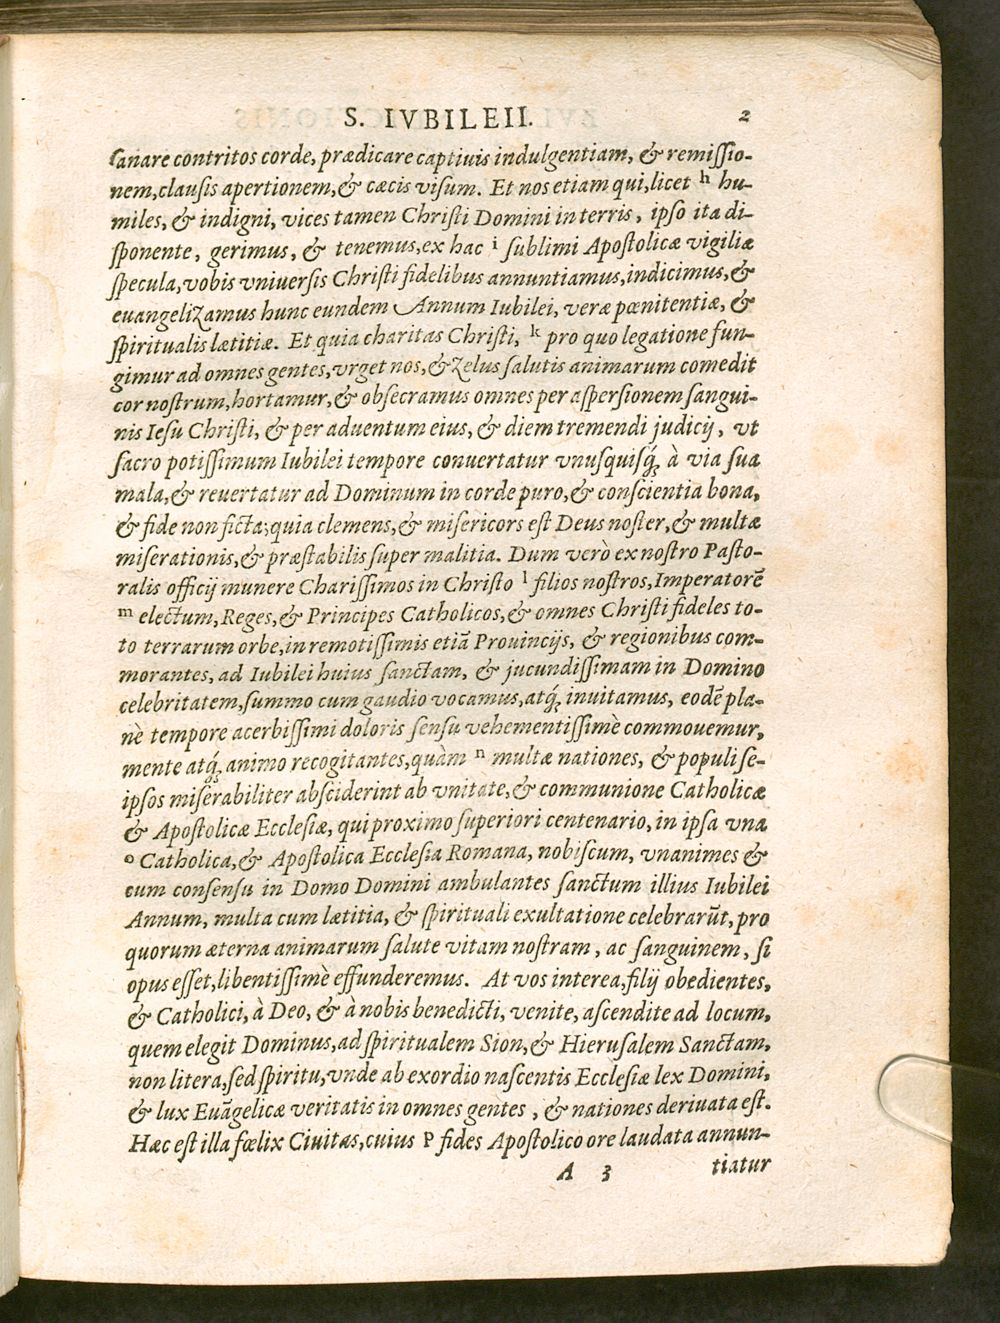 S. IVBILEII. 2
ſanare contritos corde, prædicare captiuis indulgentiam, & remiſſio-
nem, clauſis apertionem, & cæcis viſum. Et nos etiam qui, licet h hu-
miles, & indigni, vices tamen Chriſti Domini in terris, ipſo ita di-
ſponente, gerimus, & tenemus, ex hac i ſublimi Apoſtolicæ vigiliæ
ſpecula, vobis vniuerſis Chriſti fidelibus annuntiamus, indicimus, &
euangelizamus hunc eundem Annum Iubilei, veræ pœnitentiæ, &
ſpiritualis lætitiæ. Et quia charitas Chriſti, k pro quo legatione fun-
gimur ad omnes gentes, vrget nos, & zelus ſalutis animarum comedit
cor noſtrum, hortamur, & obſecramus omnes per aſperſionem ſangui-
nis Ieſu Chriſti, & per aduentum eius, & diem tremendi judicij, vt
ſacro potiſſimum Iubilei tempore conuertatur vnuſquiſq́; à via ſua
mala, & reuertatur ad Dominum in corde puro, & conſcientia bona,
& fide non ficta; quia clemens, & miſericors eſt Deus noſter, & multæ
miſerationis, & præſtabilis ſuper malitia. Dum verò ex noſtro Paſto-
ralis officij munere Chariſſimos in Chriſto l filios noſtros, Imperatorē
m electum, Reges, & Principes Catholicos, & omnes Chriſti fideles to-
to terrarum orbe, in remotiſſimis etiā Prouincijs, & regionibus com-
morantes, ad Iubilei huius ſanctam, & jucundiſſimam in Domino
celebritatem, ſummo cum gaudio vocamus, atq́; inuitamus, eodē pla-
nè tempore acerbiſſimi doloris ſenſu vehementiſſimè commouemur,
mente atq́; animo recogitantes, quàm n multæ nationes, & populi ſe-
ipſos miſerabiliter abſciderint ab vnitate, & communione Catholicæ
& Apoſtolicæ Eccleſiæ, qui proximo ſuperiori centenario, in ipſa vna
o Catholica, & Apoſtolica Eccleſia Romana, nobiſcum, vnanimes &
cum conſenſu in Domo Domini ambulantes ſanctum illius Iubilei
Annum, multa cum lætitia, & ſpirituali exultatione celebrarūt, pro
quorum æterna animarum ſalute vitam noſtram, ac ſanguinem, ſi
opus eſſet, libentiſſimè effunderemus. At vos interea, filij obedientes,
& Catholici, à Deo, & à nobis benedicti, venite, aſcendite ad locum,
quem elegit Dominus, ad ſpiritualem Sion, & Hieruſalem Sanctam,
non litera, ſed ſpiritu, vnde ab exordio naſcentis Eccleſiæ lex Domini,
& lux Euāgelicæ veritatis in omnes gentes, & nationes deriuata eſt.
Hæc eſt illa fœlix Ciuitas, cuius p fides Apoſtolico ore laudata annun-
A 3 tiatur